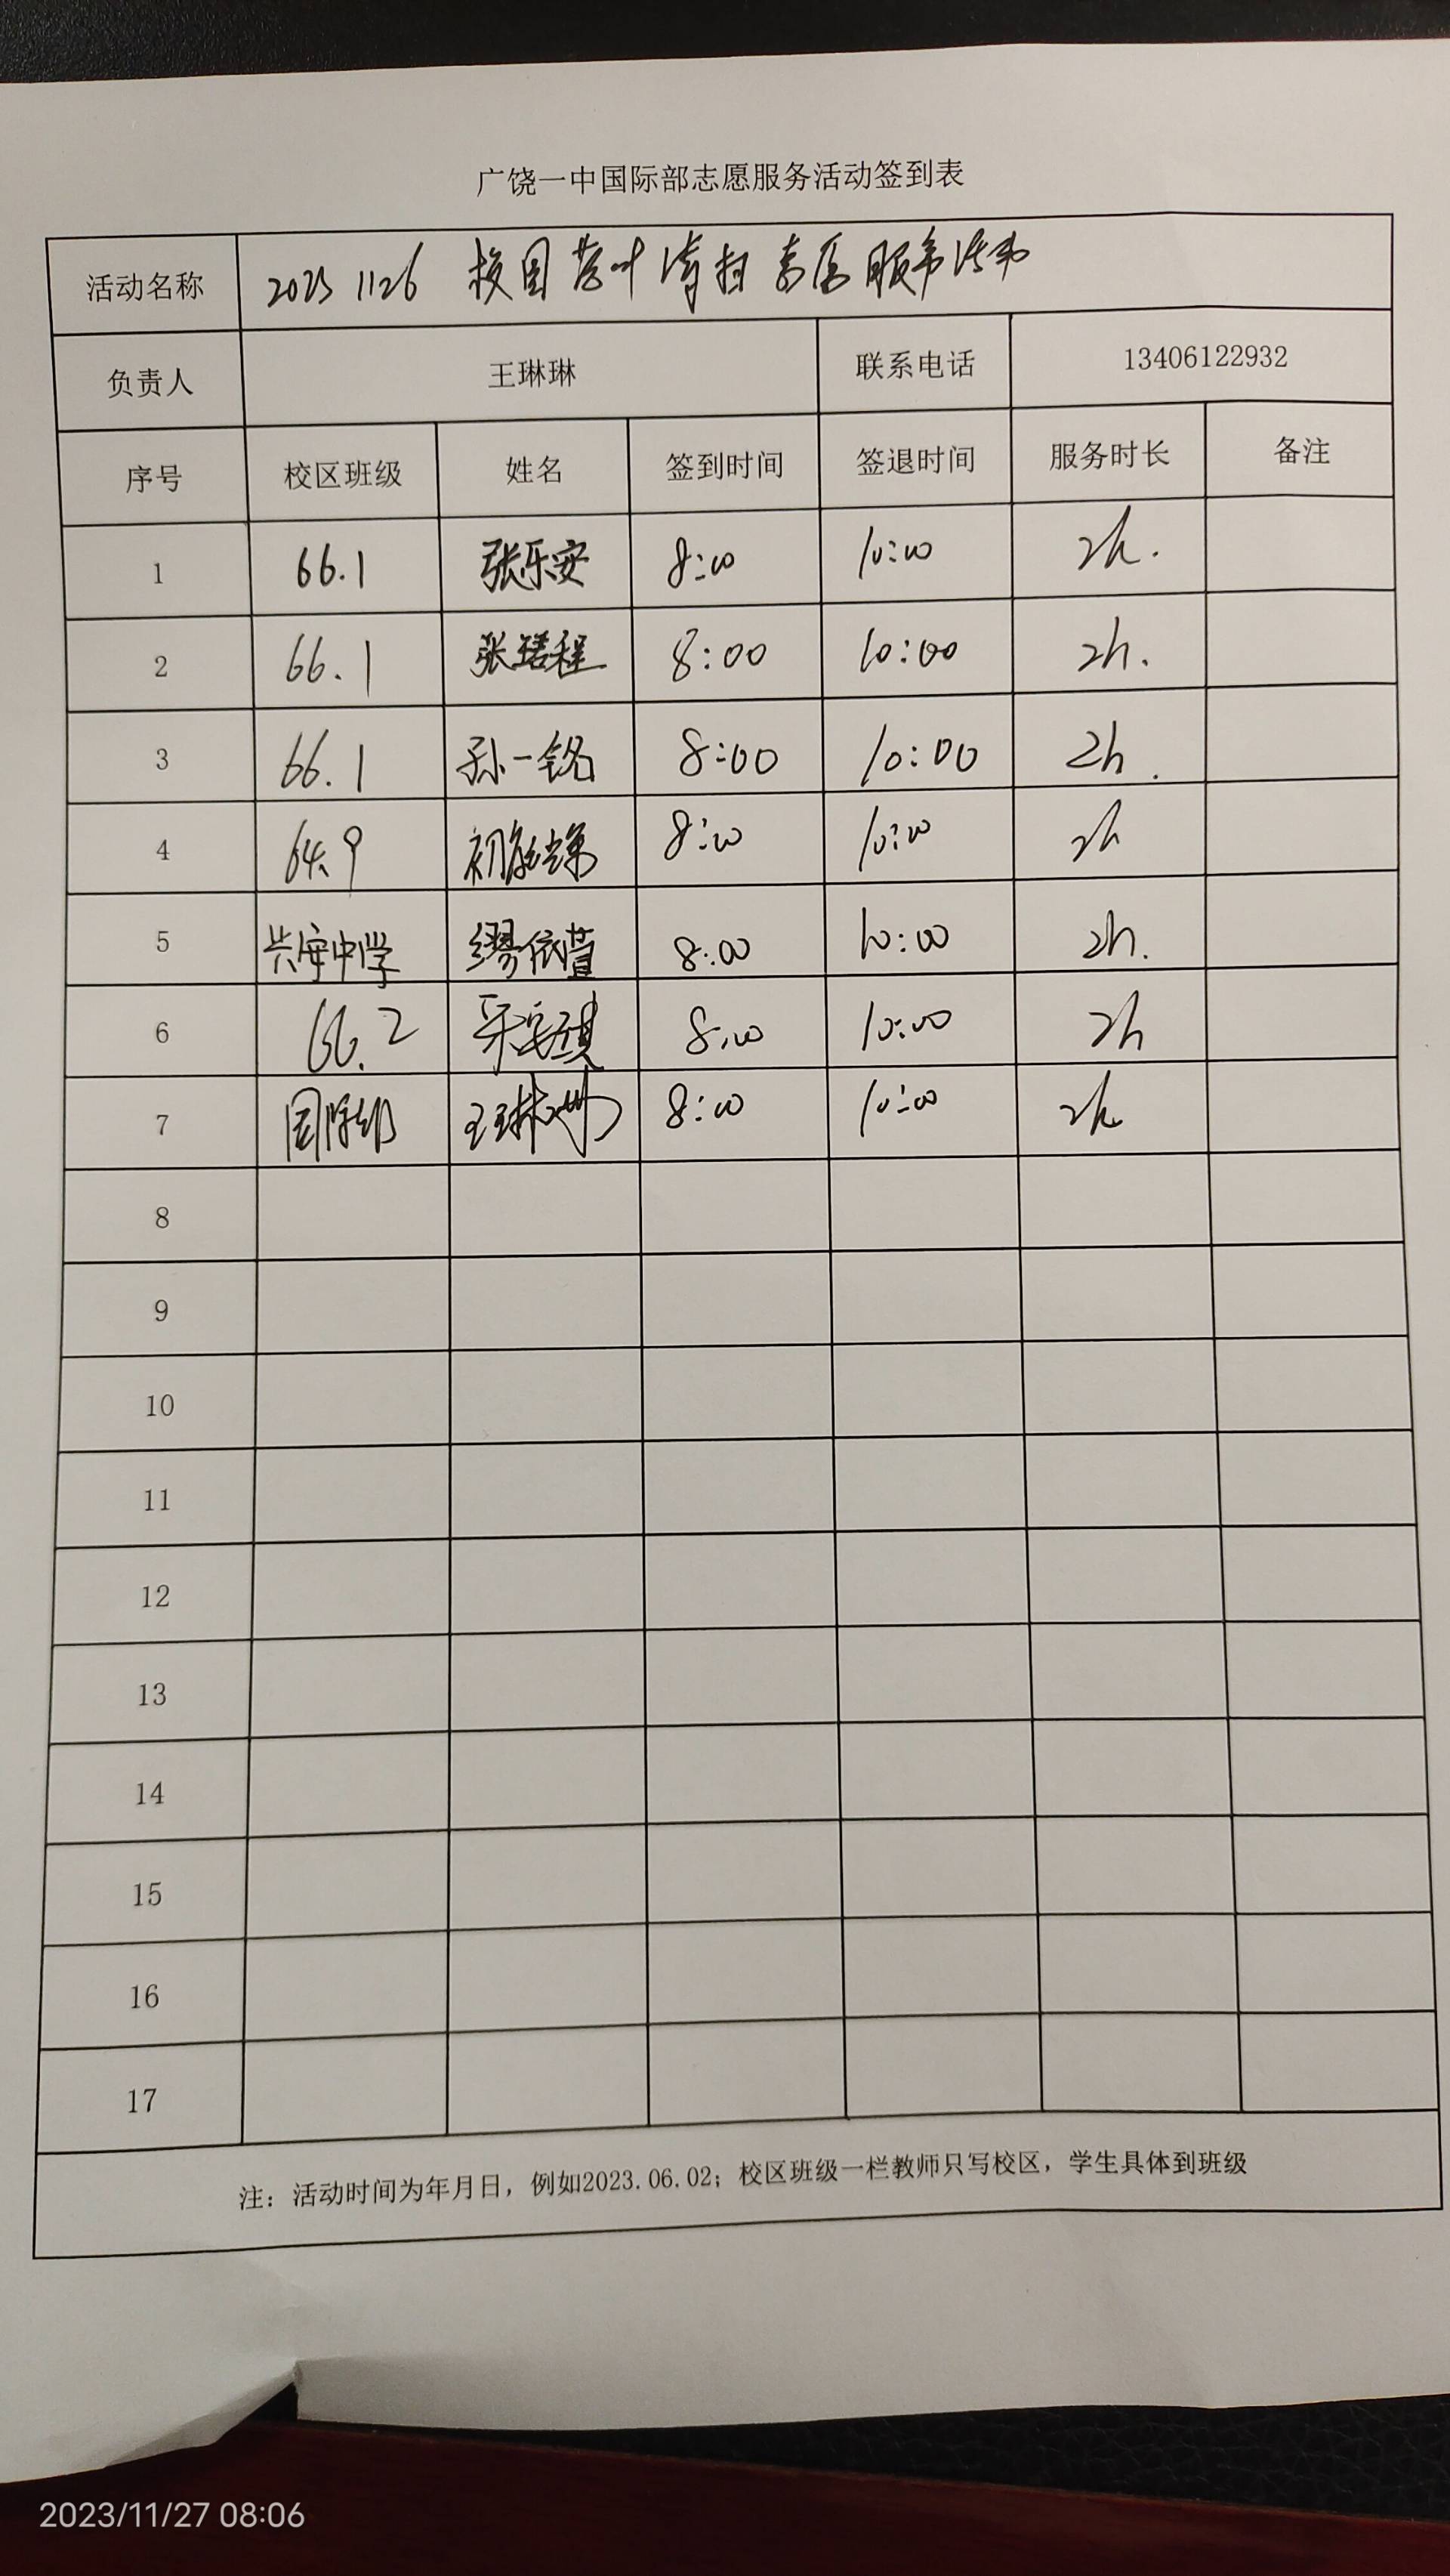 广饶一中国际部志愿服务活动签到表
活动名称 2023 1126 校园落叶清扫志愿服务活动
负责人 王琳琳 联系电话 13406122932
序号 校区班级 姓名 签到时间 签退时间 服务时长 备注
1 66.1 张乐安 8:00 10:00 2h.
2 66.1 张程 8:00 10:00 2h.
3 66.1 孙一铭 8:00 10:00 2h.
4 64.9 初 8:00 10:00 2h
5 兴安中学 缪依萱 8:00 10:00 2h.
6 66.2 琪 8:00 10:00 2h
7 国际部 王琳琳 8:00 10:00 2h
8
9
10
11
12
13
14
15
16
17
注：活动时间为年月日，例如2023.06.02；校区班级一栏教师只写校区，学生具体到班级
2023/11/27 08:06